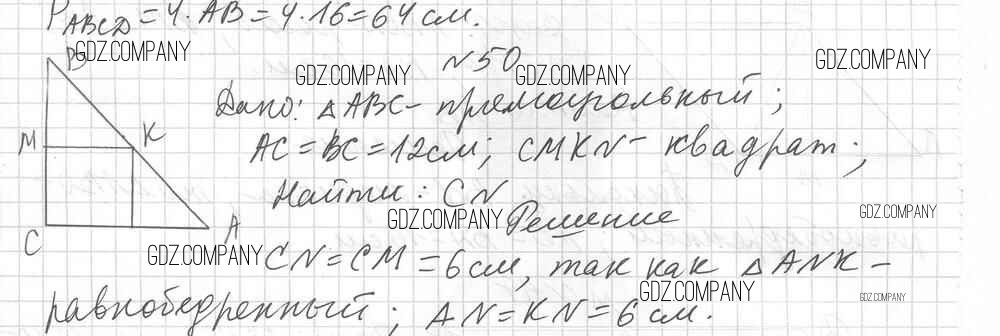 P ABCD = 4 · AB = 4 · 16 = 64 см.
GDZ.COMPANY
N 50
GDZ.COMPANY GDZ.COMPANY GDZ.COMPANY
Дано: △ABC - прямоугольный;
AC = BC = 12 см; CMKN - квадрат;
Найти: CN
GDZ.COMPANY Решение GDZ.COMPANY
B
M K
C A
GDZ.COMPANY CN = CM = 6 см, так как △ANK -
GDZ.COMPANY GDZ.COMPANY
равнобедренный; AN = KN = 6 см.